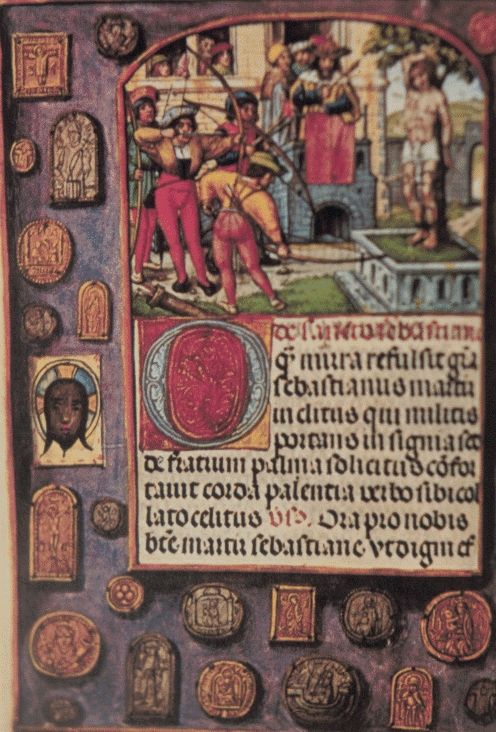 de sancto sebastiano
O q̄ mira refulsit gr̄a
sebastianus martir
inclitus qui militis
portans insignia sed
de fratrum palma solicitus cōfor
tauit corda palentia verbo sibi col
lato celitus Vs̄. Ora pro nobis
bt̄e martir sebastiane vt digni ef